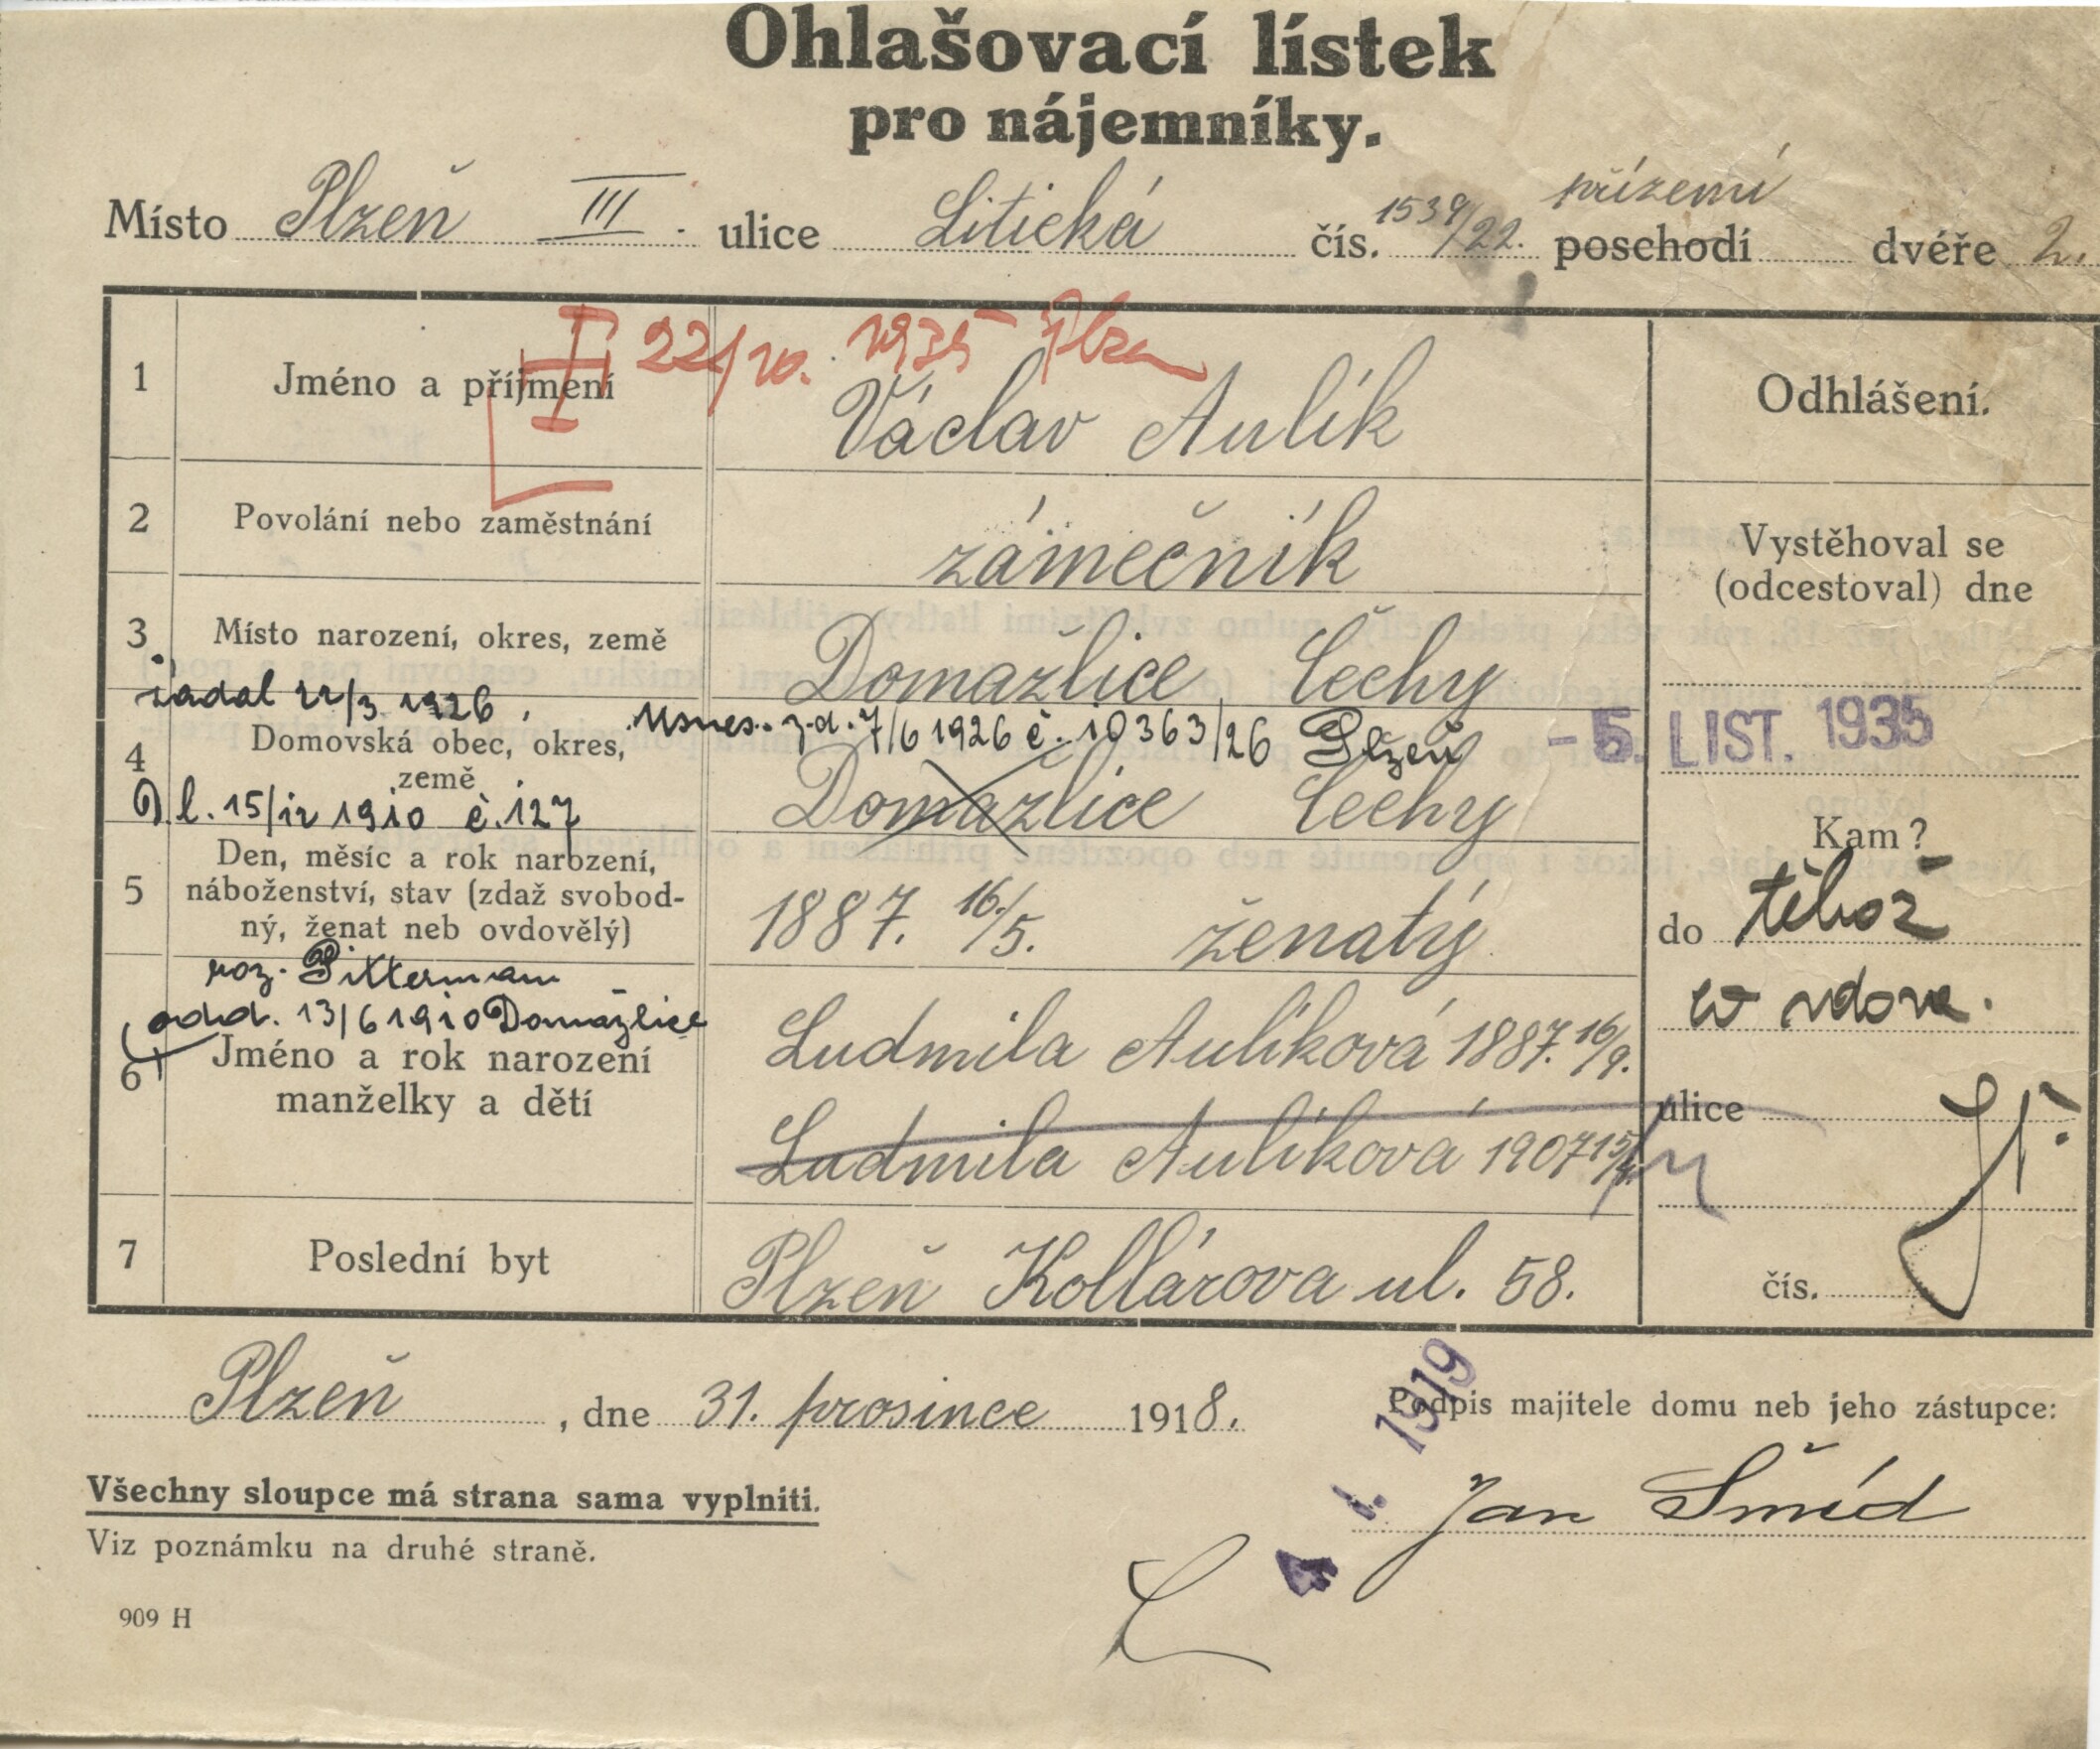 Ohlašovací lístek
pro nájemníky.
Místo Plzeň III. ulice Litická čís. 1539/22. přízemí poschodí dvéře 2.
22/10. 1935 Plzeň
1 Jméno a příjmení Václav Aulík
2 Povolání nebo zaměstnání zámečník
3 Místo narození, okres, země Domažlice Čechy
žádal 22/3 1926. usnes. z.d. 7/6 1926 č. 10363/26 Plzeň
4 Domovská obec, okres, země Domažlice Čechy
D. l. 15/12 1910 č. 127
5 Den, měsíc a rok narození, náboženství, stav (zdaž svobodný, ženat neb ovdovělý) 1887. 16./5. ženatý
roz. Pitterman
odd. 13/6 1910 Domažlice
6 Jméno a rok narození manželky a dětí Ludmila Aulíková 1887. 16/9.
Ludmila Aulíková 1907 15/4.
7 Poslední byt Plzeň Kollárova ul. 58.
Odhlášení.
Vystěhoval se
(odcestoval) dne
- 5. LIST. 1935
Kam?
do téhož
vdova.
ulice
čís.
Plzeň, dne 31. prosince 1918.
4 I. 1919
Podpis majitele domu neb jeho zástupce:
Jan Šmíd
Všechny sloupce má strana sama vyplniti.
Viz poznámku na druhé straně.
909 H